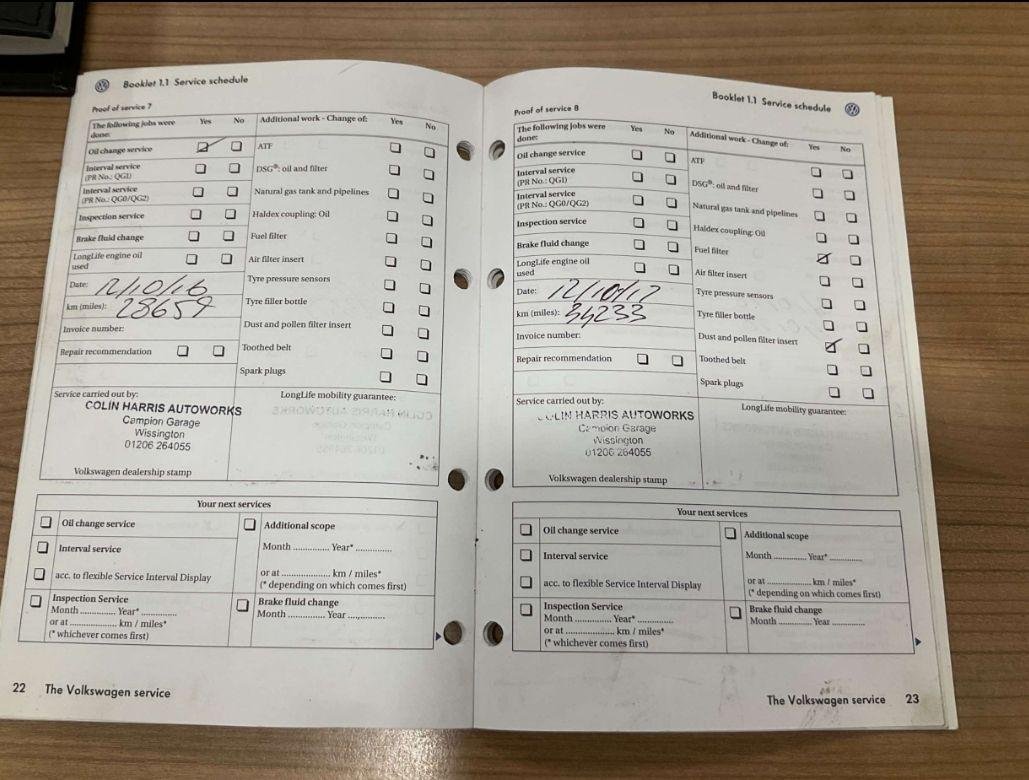 Booklet 1.1 Service schedule
Proof of service 7
The following jobs were done: Yes No Additional work - Change of: Yes No
Oil change service ATF
Interval service (PR No.: QGI) DSG®: oil and filter
Interval service (PR No.: QG0/QG2) Natural gas tank and pipelines
Inspection service Haldex coupling: Oil
Brake fluid change Fuel filter
LongLife engine oil used Air filter insert
Date: 12/10/16 Tyre pressure sensors
km (miles): 28659 Tyre filler bottle
Invoice number: Dust and pollen filter insert
Repair recommendation Toothed belt
Spark plugs
Service carried out by: LongLife mobility guarantee:
COLIN HARRIS AUTOWORKS
Campion Garage
Wissington
01206 264055
Volkswagen dealership stamp
Your next services
Oil change service Additional scope
Interval service Month .............. Year* ..............
acc. to flexible Service Interval Display or at .................. km / miles*
(* depending on which comes first)
Inspection Service Brake fluid change
Month .............. Year* .............. Month .............. Year ..............
or at .................. km / miles*
(* whichever comes first)
22 The Volkswagen service
Booklet 1.1 Service schedule
Proof of service 8
The following jobs were done: Yes No Additional work - Change of: Yes No
Oil change service ATF
Interval service (PR No.: QGI) DSG®: oil and filter
Interval service (PR No.: QG0/QG2) Natural gas tank and pipelines
Inspection service Haldex coupling: Oil
Brake fluid change Fuel filter
LongLife engine oil used Air filter insert
Date: 12/10/17 Tyre pressure sensors
km (miles): 34233 Tyre filler bottle
Invoice number: Dust and pollen filter insert
Repair recommendation Toothed belt
Spark plugs
Service carried out by: LongLife mobility guarantee:
COLIN HARRIS AUTOWORKS
Campion Garage
Wissington
01206 264055
Volkswagen dealership stamp
Your next services
Oil change service Additional scope
Interval service Month .............. Year* ..............
acc. to flexible Service Interval Display or at .................. km / miles*
(* depending on which comes first)
Inspection Service Brake fluid change
Month .............. Year* .............. Month .............. Year ..............
or at .................. km / miles*
(* whichever comes first)
The Volkswagen service 23